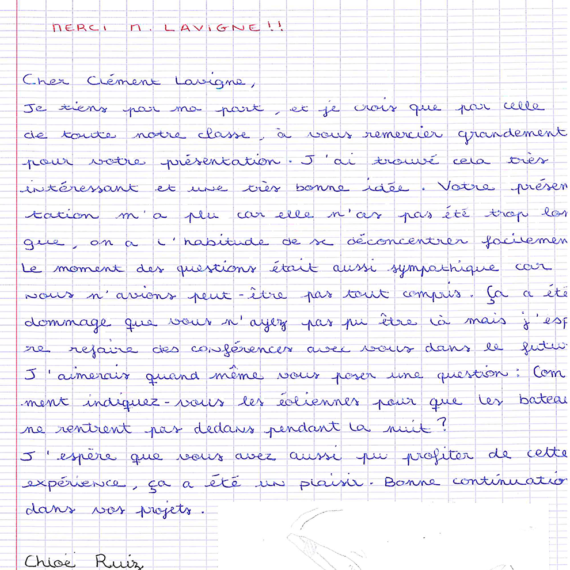 MERCI M. LAVIGNE!!
Cher Clément Lavigne,
Je tiens par ma part, et je crois que par celle
de toute notre classe, à vous remercier grandement
pour votre présentation. J'ai trouvé cela très
intéressant et une très bonne idée. Votre présen
tation m'a plu car elle n'as pas été trop lon
gue, on a l'habitude de se déconcentrer facilemen
Le moment des questions était aussi sympathique car
nous n'avions peut-être pas tout compris. Ça a été
dommage que vous n'ayez pas pu être là mais j'esp
re refaire des conférences avec vous dans le futur
J'aimerais quand même vous poser une question: Com
ment indiquez-vous les éoliennes pour que les bateau
ne rentrent pas dedans pendant la nuit?
J'espère que vous avez aussi pu profiter de cette
expérience, ça a été un plaisir. Bonne continuatio
dans vos projets.
Chloé Ruiz